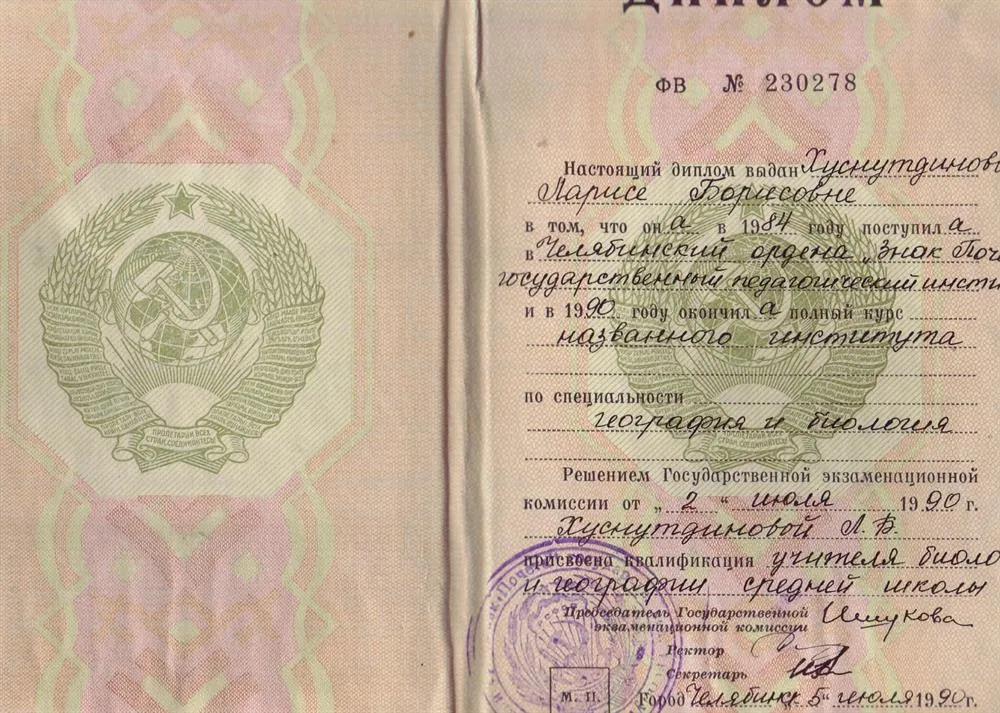 ДИПЛОМ
ФВ № 230278
Настоящий диплом выдан Хуснутдинов
Ларисе Борисовне
в том, что он а в 1984 году поступил а
в Челябинский ордена „Знак Поч
государственный педагогический инсти
и в 1990 году окончил а полный курс
названного института
по специальности
география и биология
Решением Государственной экзаменационной
комиссии от „ 2 “ июля 1990 г.
Хуснутдиновой Л. Б.
присвоена квалификация учителя биоло
и географии средней школы
Председатель Государственной
экзаменационной комиссии Ишукова
Ректор
Секретарь
М. П.
Город Челябинск 5 “ июля 1990 г.
ПРОЛЕТАРИИ ВСЕХ
СТРАН, СОЕДИНЯЙТЕСЬ!